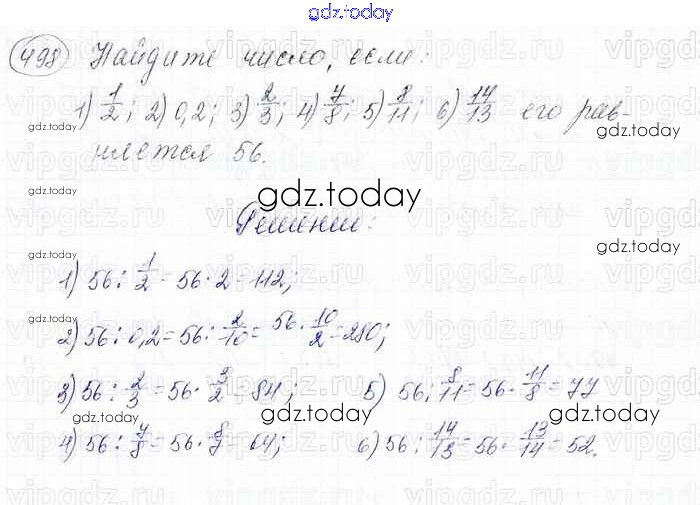 gdz.today
498 Найдите число, если:
1) 1/2; 2) 0,2; 3) 2/3; 4) 7/8; 5) 8/11; 6) 14/13 его рав-
няется 56.
Решение:
1) 56 : 1/2 = 56 · 2 = 112;
2) 56 : 0,2 = 56 : 2/10 = 56 · 10/2 = 280;
3) 56 : 2/3 = 56 · 3/2 = 84;
4) 56 : 7/8 = 56 · 8/7 = 64;
5) 56 : 8/11 = 56 · 11/8 = 77
6) 56 : 14/13 = 56 · 13/14 = 52.
gdz.today
gdz.today
gdz.today
gdz.today
gdz.today
gdz.today
gdz.today
gdz.today
gdz.today
gdz.today
gdz.today
gdz.today
vipgdz.ru